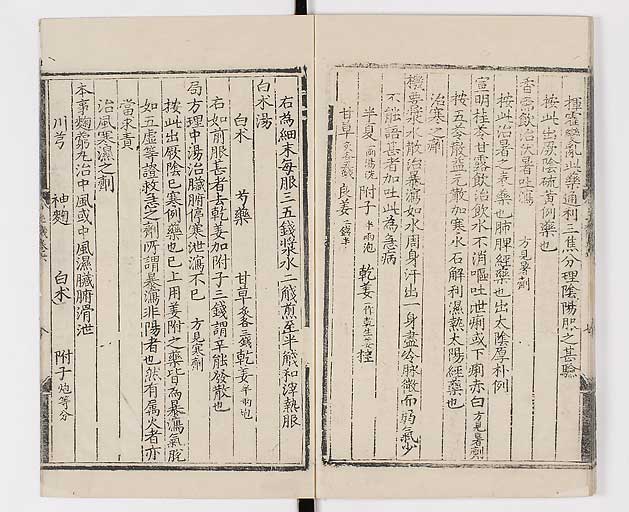 揮霍變亂此藥通利三焦分理陰陽服之甚驗
按此出厥陰硫黄例藥也
香薷飲治伏暑吐瀉 方見暑劑
按此治暑之劑藥也肺脾經藥也出太陰厚朴例
宣明桂苓甘露飲治飲水不消嘔吐泄痢或下痢赤白方見暑劑
按五苓散益元散加寒水石解利濕熱太陽經藥也
治寒之劑
機要漿水散治暴瀉如水周身汗出一身盡冷脉微而弱氣少
不能語甚者加吐此為急病
半夏二兩湯洗 附子半兩炮 乾姜一作乾生姜 桂
甘草炙各五錢 良姜二錢半
右為細末每服三五錢漿水二盞煎至半盞和滓熱服
白朮湯
白朮 芍藥 甘草炙各三錢 乾姜半兩炮
右如前服甚者去乾姜加附子三錢謂辛能發散也
局方理中湯治臟腑停寒泄瀉不已 方見寒劑
按此出厥陰已寒例藥也已上用姜附之藥皆為暴瀉氣脫
如五虛等證救急之劑所謂暴瀉非陽者也然有屬火者亦
當求責
治風寒濕之劑
本事芎藭丸治中風或中風濕臟腑滑泄
川芎 神麴 白朮 附子炮等分